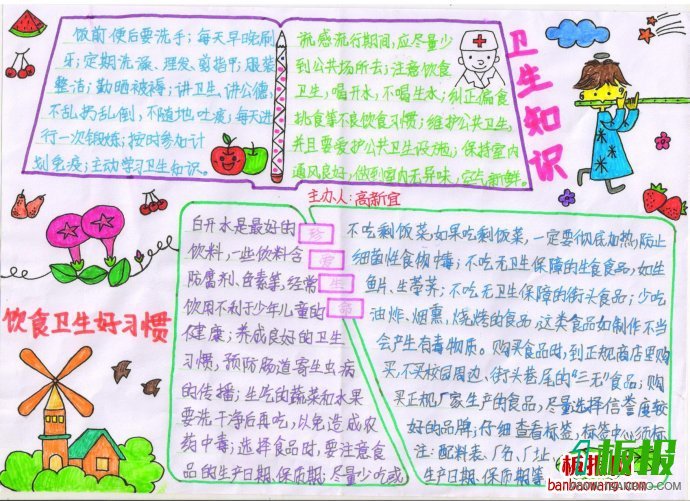 饭前便后要洗手；每天早晚刷
牙；定期洗澡、理发、剪指甲；服装
整洁；勤晒被褥；讲卫生，讲公德，
不乱扔乱倒，不随地吐痰；每天进
行一次锻炼；按时参加计
划免疫；主动学习卫生知识。
流感流行期间，应尽量少
到公共场所去；注意饮食
卫生，喝开水，不喝生水；纠正偏食
挑食等不良饮食习惯；维护公共卫生，
并且要爱护公共卫生设施；保持室内
通风良好，做到室内无异味，空气新鲜。
卫生知识
主办人：高新宜
饮食卫生好习惯
白开水是最好的
饮料，一些饮料含
防腐剂、色素等，经常
饮用不利于少年儿童的
健康；养成良好的卫生
习惯，预防肠道寄生虫病
的传播；生吃的蔬菜和水果
要洗干净后再吃，以免造成农
药中毒；选择食品时，要注意食
品的生产日期、保质期；尽量少吃或
珍
爱
生
命
不吃剩饭菜，如果吃剩饭菜，一定要彻底加热，防止
细菌性食物中毒；不吃无卫生保障的生食食品，如生
鱼片、生荸荠；不吃无卫生保障的街头食品；少吃
油炸、烟熏、烧烤的食品，这类食品如制作不当
会产生有毒物质。购买食品时，到正规商店里购
买，不买校园周边、街头巷尾的“三无”食品；购
买正规厂家生产的食品，尽量选择信誉度较
好的品牌；仔细查看标签，标签中必须标
注：配料表、厂名、厂址、
生产日期、保质期等
板报网
banbaowang.com
老板报